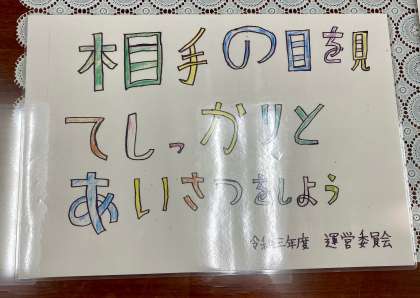 相手の目を見
てしっかりと
あいさつをしよう
令和三年度 運営委員会